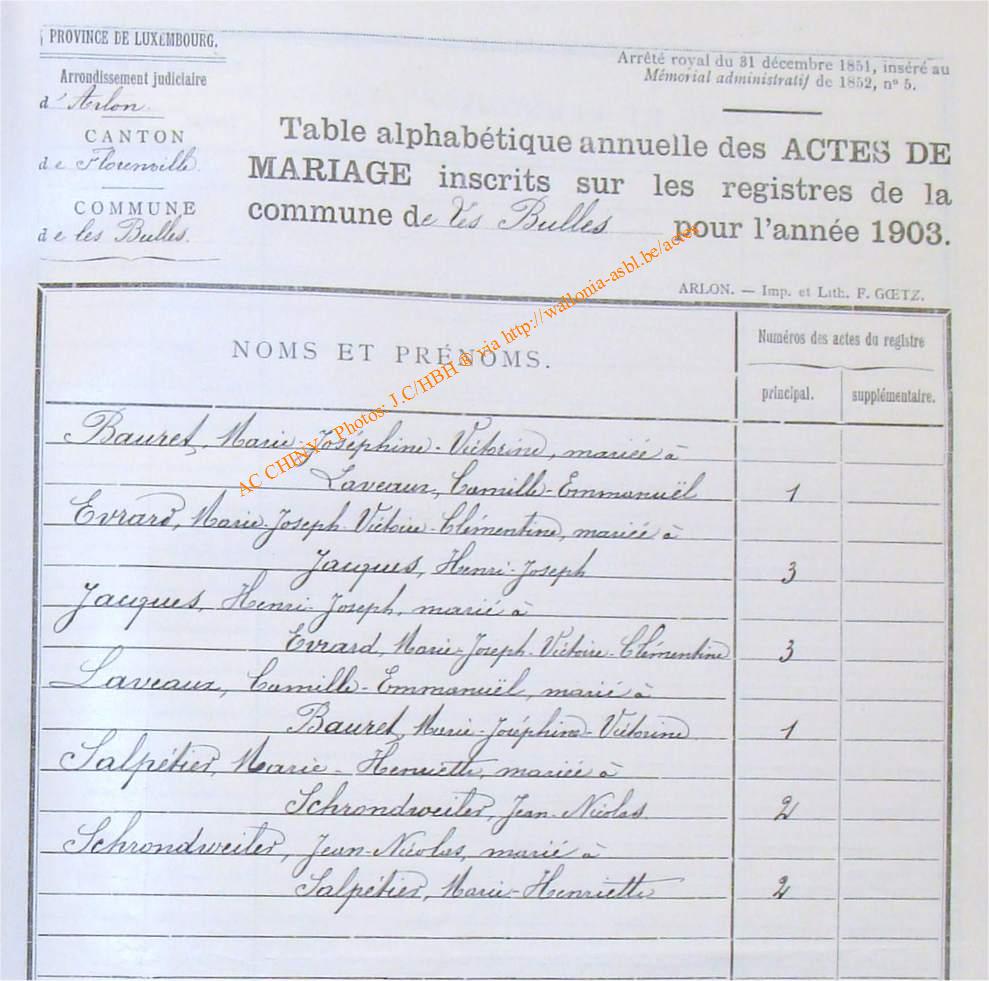 PROVINCE DE LUXEMBOURG.
Arrondissement judiciaire
d'Arlon.
CANTON
de Florenville.
COMMUNE
de les Bulles.
Arrêté royal du 31 décembre 1851, inséré au
Mémorial administratif de 1852, n° 5.
Table alphabétique annuelle des ACTES DE
MARIAGE inscrits sur les registres de la
commune de les Bulles pour l'année 1903.
ARLON. — Imp. et Lith. F. GŒTZ.
NOMS ET PRÉNOMS.
Numéros des actes du registre
principal.
supplémentaire.
Bauret, Marie-Joséphine-Victorine, mariée à
Laveaux, Camille-Emmanuël 1
Evrard, Marie-Joseph-Victoire-Clémentine, mariée à
Jacques, Henri-Joseph 3
Jacques, Henri-Joseph, marié à
Evrard, Marie-Joseph-Victoire-Clémentine 3
Laveaux, Camille-Emmanuël, marié à
Bauret, Marie-Joséphine-Victorine 1
Salpétier, Marie-Henriette, mariée à
Schrondweiler, Jean-Nicolas. 2
Schrondweiler, Jean-Nicolas, marié à
Salpétier, Marie-Henriette 2
AC CHINY - Photos: J.C/HBH ® via http://wallonia-asbl.be/actes